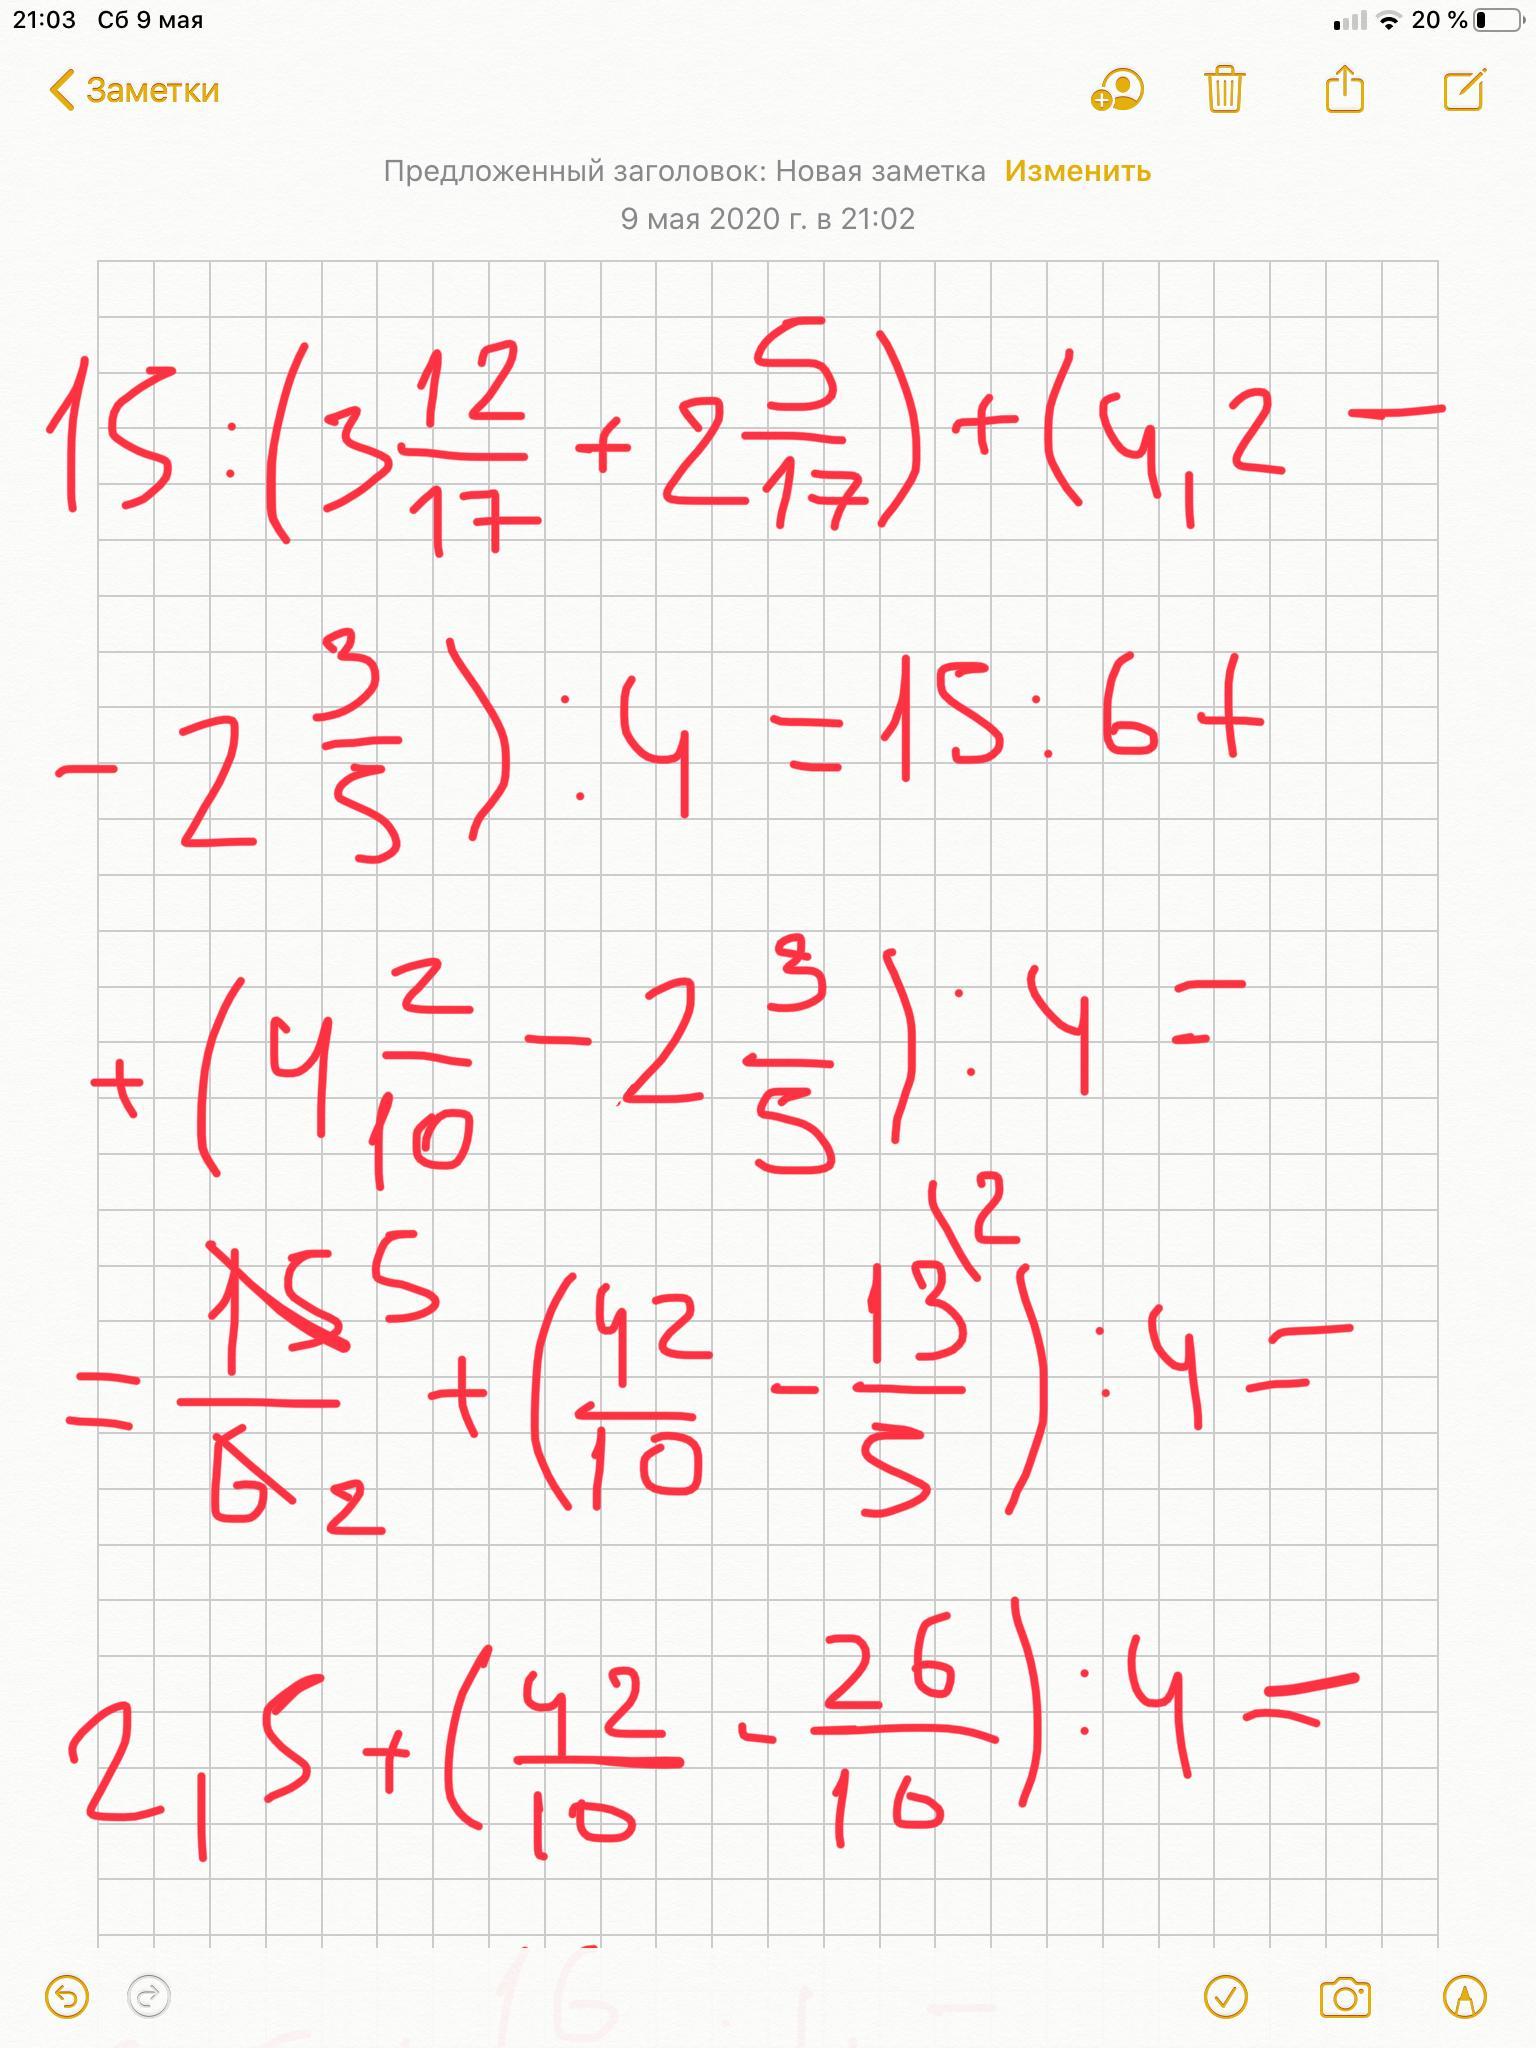 21:03 Сб 9 мая 20 %
Заметки
Предложенный заголовок: Новая заметка Изменить
9 мая 2020 г. в 21:02
15 : (3 12/17 + 2 5/17) + (4,2 −
− 2 3/5) : 4 = 15 : 6 +
+ (4 2/10 − 2 3/5) : 4 =
= 15 5/6 2 + (42/10 − 13\2/5) : 4 =
2,5 + (42/10 − 26/10) : 4 =